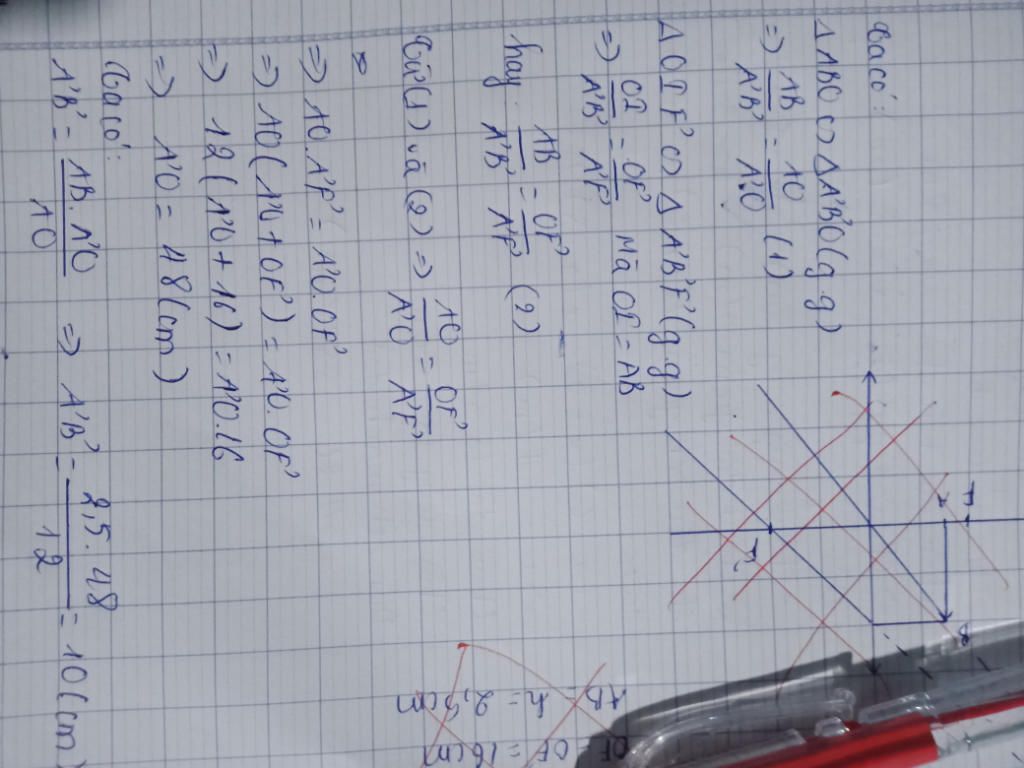 Ta có:
ΔABO ∽ ΔA'B'O (g.g)
=> AB/A'B' = AO/A'O (1)
ΔOIF' ∽ ΔA'B'F' (g.g)
=> OI/A'B' = OF'/A'F' Mà OI = AB
hay AB/A'B' = OF'/A'F' (2)
Từ (1) và (2) => AO/A'O = OF'/A'F'
=> AO.A'F' = A'O.OF'
=> AO(A'O + OF') = A'O.OF'
=> 12(A'O + 16) = A'O.16
=> A'O = 48 (cm)
Ta có:
A'B' = AB.A'O/AO => A'B' = 2,5.48/12 = 10 (cm)
F
B
F'
AB = h = 2,5cm
OF = OF' = 16cm